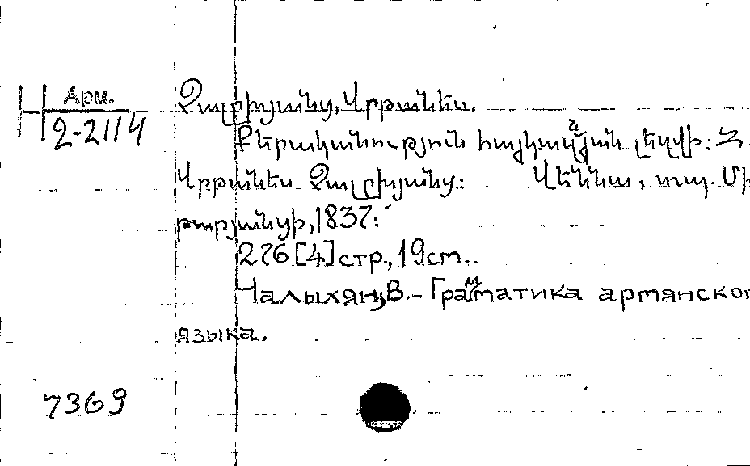 Арм.
2-2114
Չալըխյանց, Վրթանես.
Քերականություն հայկազյան լեզվի: Հ.
Վրթանես Չալըխյանց: Վեննա, տպ. Մխի
թարյանցի, 1837:
276 [4] стр., 19см.
Чалыхян, В. - Граматика армянског
языка.
7369